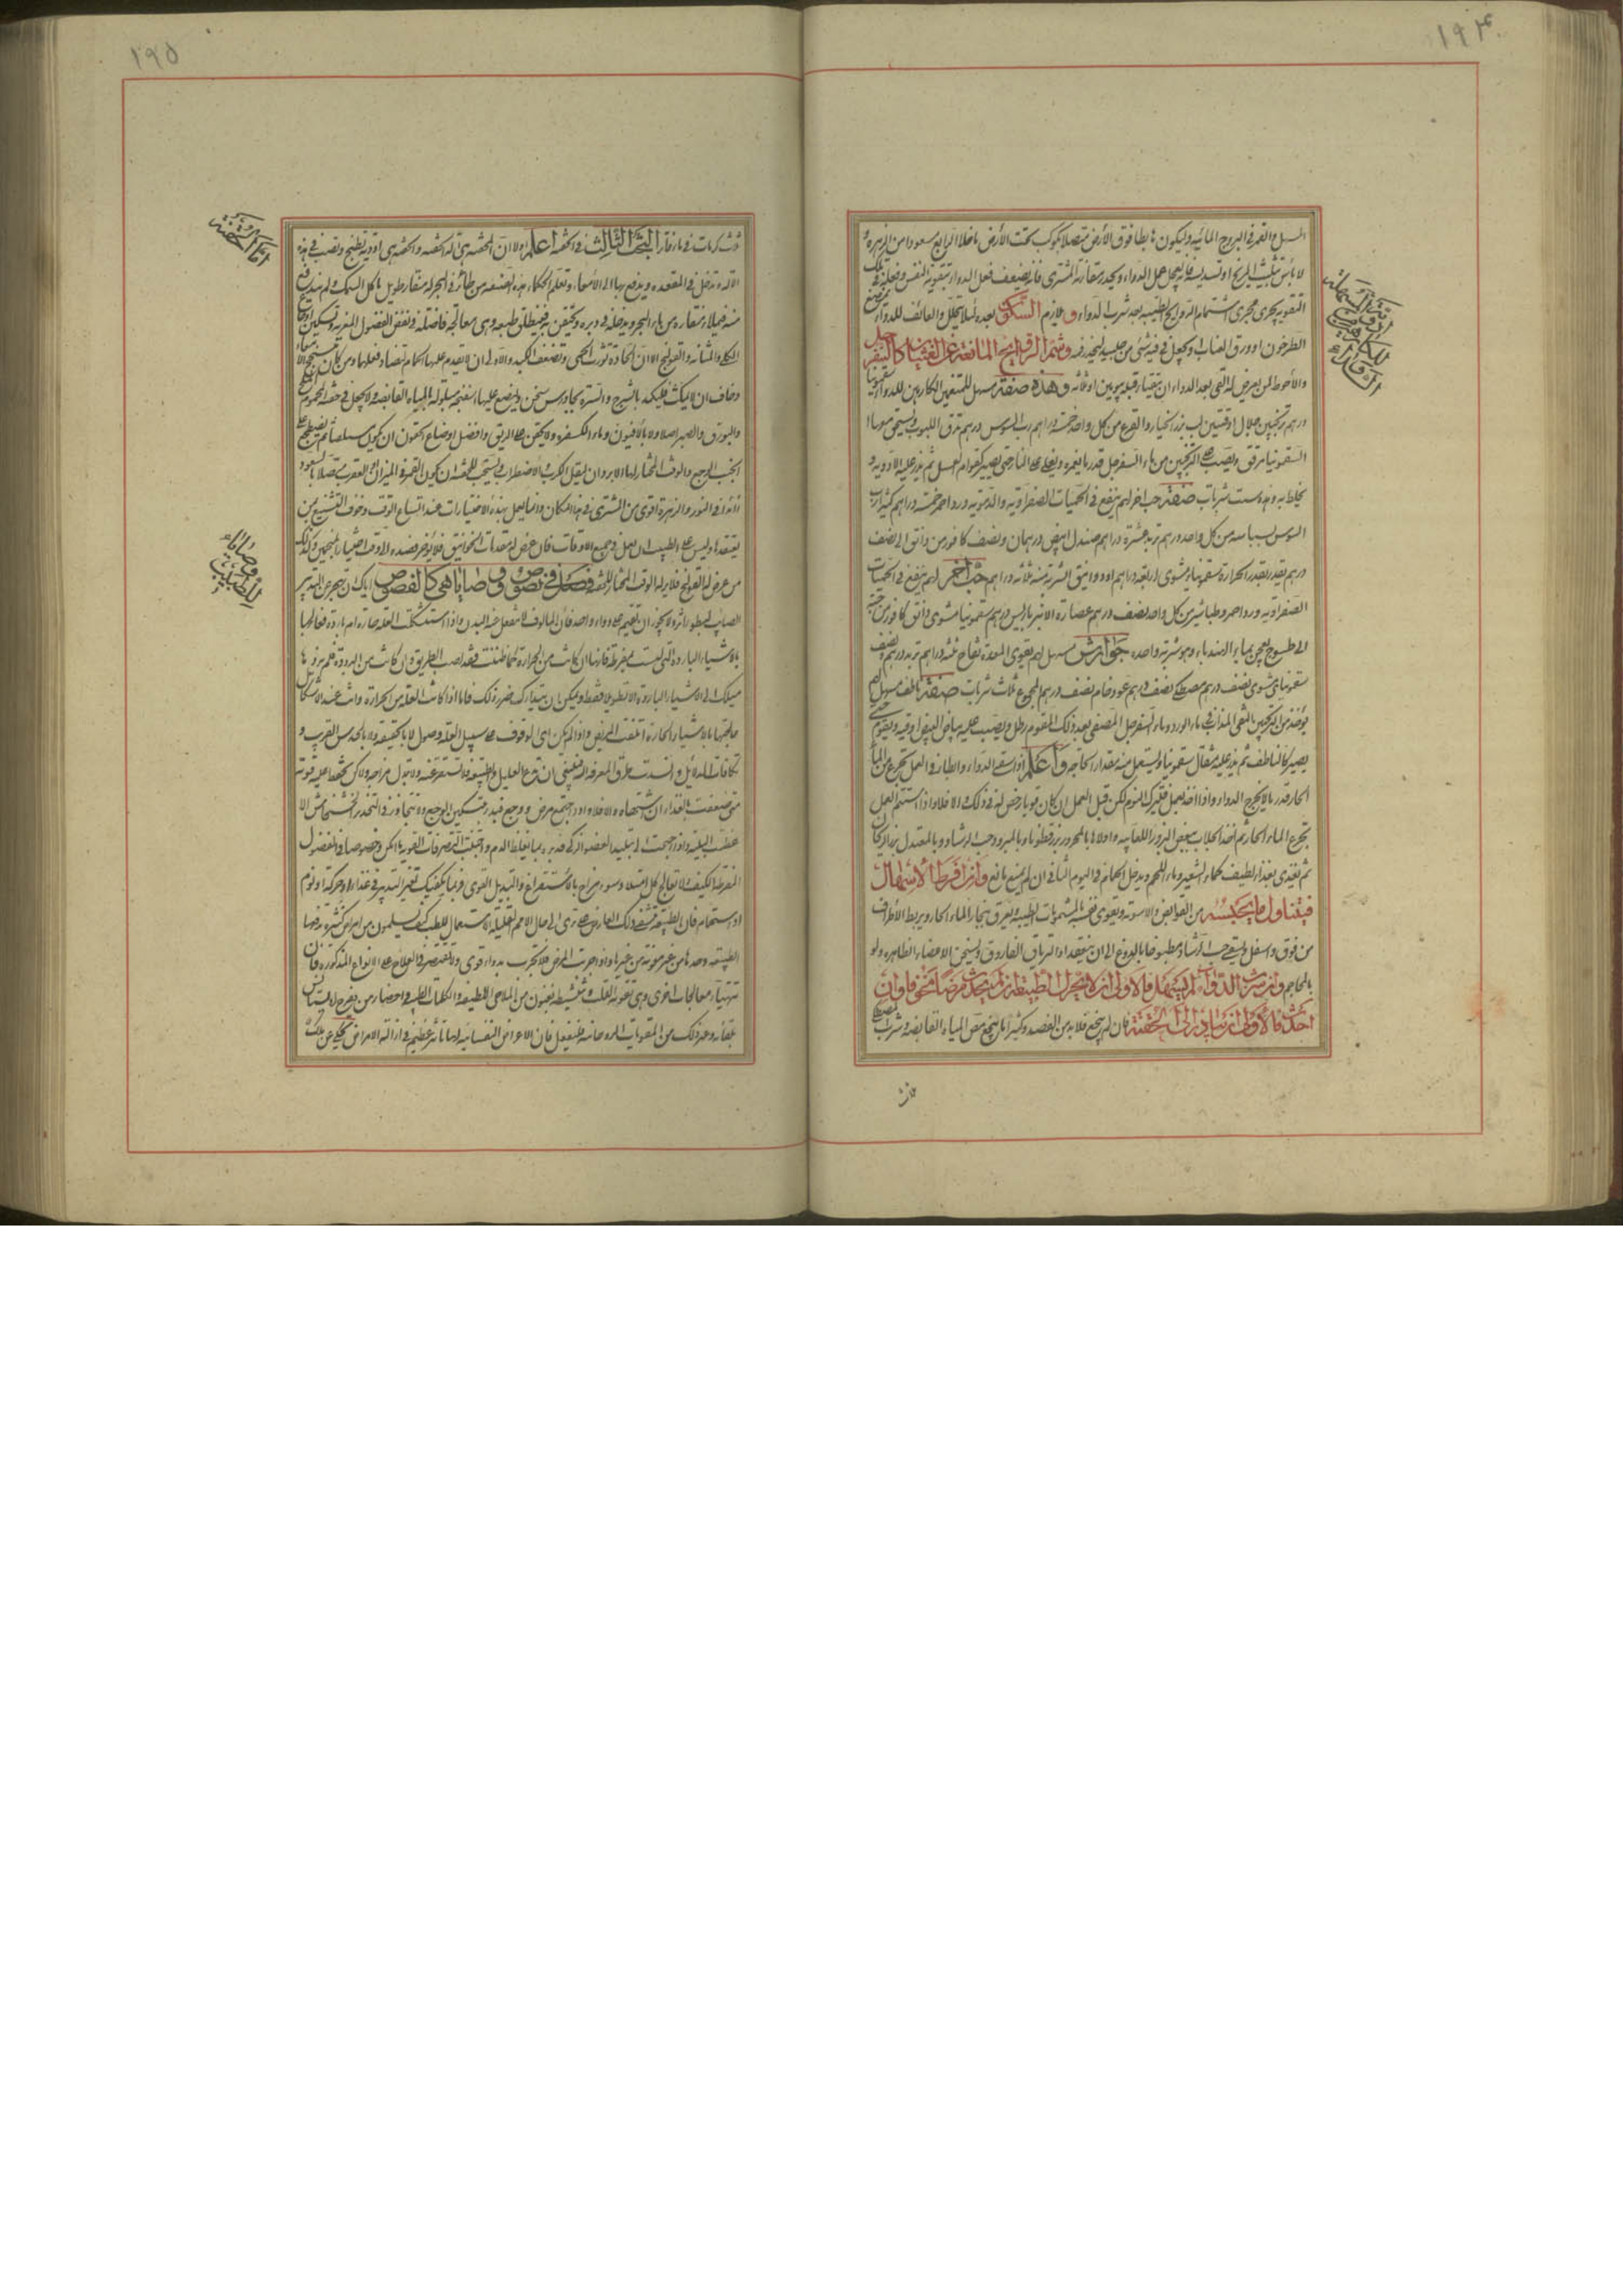 ١٩٤
المسهل والقمر فى البروج المائيه وليكون هابطا فوق الأرض متصلا بكوكب تحت الأرض ما خلا الرابع مسعودا من الزهره و
لا بأس بتثليث المريخ او تسديسه فانه يعجل عمل الدواء ويحذر مقارنة المشترى فانه يضعف فعل الدواء بتقوية النفس وفعله فى تلك
التقويه يجرى مجرى اشتمام الروايح الطيبه بعد شرب الدواء و ملازم السكون بعده لئلا يتحلل والعائف للدواء يمضغ
الطرخون او ورق العناب او يجعل فى فيه شئ من حليب ليخدر فمه وشم الروايح المانعة عن الغثيان كالسفرجل
والأحوط لمن يعرض له القئ بعد الدواء ان يتقيأ قبله بيومين او ثلاثه وهذه صفة مسهل للمتنعمين الكارهين للدواء سقمونيا
درهم ترنجبين جلال اوقيتين لب بزر الخيار والقرع من كل واحد خمسة دراهم رب السوس درهم تدق اللبوب ويسحق
السقمونيا مرفق ويصب على الترنجبين من ماء السفرجل قدر ما يغمره ويغلى على النار حتى يصير كقوام العسل ثم يذر عليه الادويه و
يخلط به وهذه ست شربات صفة حب اخر لهم ينفع فى الحميات الصفراويه والدمويه ورد احمر خمسة دراهم كثيرا رب
السوس بسباسه من كل واحد درهم تربد عشرة دراهم صندل ابيض درهمان ونصف كافور من دانق الى نصف
درهم بقدر الحرارة سقمونيا مشوى اربعة دراهم او دوانيق الشربة منه ثلاثه دراهم حب آخر لهم ينفع فى الحميات
الصفراويه ورد احمر وطباشير من كل واحد نصف درهم عصارة الانبرباريس درهم سقمونيا مشوى دانق كافور من حبة
الى طسوج يعجن بماء الهندباء وهو شربة واحده جوارش مسهل لهم يقوى المعدة تفاح ثلثه دراهم تربد درهم ونصف
سقمونياى مشوى نصف درهم مصطكى نصف درهم عود خام نصف درهم المجموع ثلاث شربات صفة ناطف مسهل لهم
يؤخذ من الترنجبين المنقى المذاب فى ماء الورد وماء السفرجل المصفى بعد ذلك المقوم رطل ويصب عليه بياض البيض اوقيه ويقوم حتى
يصير كالناطف ثم يذر عليه مثقال سقمونيا ويستعمل منه مقدار الحاجه واعلم اذا سقى الدواء وابطأ فى العمل يتجرع من الماء
الحار قدر ما لا يخرج الدواء واذا اخذ يعمل فليترك النوم لكن قبل العمل ان كان قويا رخص له فى ذلك والا فلا واذا استتم العمل
تجرع الماء الحار ثم اخذ الجلاب ببعض البزور اللعابيه واولاها بالمحرور بزرقطونا وبالمبرود حب الرشاد وبالمعتدل بزر الريحان
ثم تغذى بغذاء لطيف كماء الشعير وماء اللحم ويدخل الحمام فى اليوم الثانى ان لم يمنع مانع وان افرط الاسهال
فيتناول ما يحبسه من القوابض والاسوقة ويقوى نفسه بالمشمومات الطيبه ويعرق ببخار الماء الحار ويربط الأطراف
من فوق واسفل ويسقى حب الرشاد مطبوخا بالدوغ الى ان ينعقد او الترياق الفاروق ويسخن الاعضاء الظاهره ولو
بالمحاجم وان شرب الدواء لم يسهل فالاولى ان لا يحرك الطبيعة ان لم يحدث مرضا مخوفا وان
احدث فالاولى ان يبادر الى الحقنة فان لم ينجع فلابد من الفصد وكثيرا ما ينجع سقى المياه القابضه وشراب مصطكى
للكارهين
١٩٥
ثلث كرمات فى ماء فاتر البحث الثالث فى الحقنه اعلم اولا ان الحقنه هى آلة الحقنه والحقنه هى ادوية تطبخ وتصب فى هذه
الآلة وتدخل فى المقعده ويدفع بها الى الأمعاء وتعلم الحكماء هذه الصنعه من طائر فى البحر له منقار طويل يأكل السمك ولم يندفع
منه فيملاء منقاره من ماء البحر ويدخله فى دبره ويحتقن به فينطلق طبعه وهى معالجة فاضلة فى نفض الفضول المنفريه وتسكين اوجاع
الكلى والمثانه والقولنج الا ان الحادة تورث الحمى وتضعف الكبد والأولى ان لا يقدم عليها الحمام
وخاف ان لا يمكث فليكمد بالشيرج والسره بجاورس سخن ويوضع عليها اسفنجة مبلولة بالمياه القابضه ولا يجعل فى حقنة المحموم الملح
والبورق والصبر اصلا ولا بالأفيون وماء الكسفره ولا يحتقن على الريق وافضل اوضاع المحتقن ان يكون مستلقيا ثم يضطجع على
الجنب الوجع والوقت المختار لها الابردان ليقل الكرب والاضطراب ويستحب للحقنة ان يكون القمر فى الميزان او العقرب متصلا بالسعود
زائدا فى النور والزهرة اقوى من المشترى فى هذا المكان وانما يعمل بهذه الاختيارات عند اتساع الوقت وخوف التشنيع ممن
يعتقدها وليس على الطبيب ان يعمل فى جميع الاوقات فان عرض له مقدمات الخوانيق فلا يؤخر فصده الى وقت اختيار المنجمين وكذلك
من عرض له القولنج فلا يرد له الوقت المختار للحقنه فصل فى نصوص و وصايا هى كالفصوص اياك ان تهجر عن التدبير
الصايب لبطؤ اثره ولا يجوز ان يقيم على دواء واحد فان المالوف لا ينفعل عنه البدن واذا استشكلت العله حارة ام باردة فعالجها
بالاشياء البارده التى ليست بمفرطة فانها ان كانت من الحرارة كما ظننت فقد اصبت الطريق وان كانت من البرودة فلم يزدها
ميلك الى الاشياء الباردة الا تطويلا فقط ويمكن ان يتدارك ضرر ذلك فاما اذا كانت العلة من الحرارة وانت عند الاشكال
عالجتها بالاشياء الحارة اتلفت المريض واذا لم يكن الى الوقوف على سبيل العلة وصول لا بالحقيقه ولا بالحدس القريب و
تكافات الدلائل وانسدت طرق المعرفة البته فينبغى ان تدع العليل والطبيعة ولا تستفرغنه ولا تبدل مزاجه ولكن تحفظ عليه قوته
متى ضعفت بالغذاء ان اشتهاه والا فلا واذا اجتمع مرض ووجع فيبدء بتسكين الوجع ولا تتجاوز فى التخدير الخشخاش الا
عظمت البليه واذا احتجت الى تبليد العضو الزكى فدبره بما يغلظ الدم واجتنب التصرفات القويه ما امكن وخصوصا فى الفصول
المفرطة الكيفيه ولا تعالج كل امتلاء وسوء مزاج بالاستفراغ والتبديل القوى فربما يكفيك تغير التدبير فى غذاء او حركة او نوم
او استحمام فان الطبيعة تشفى ذلك العارض على ترى الى حال الامم القليلة الاستعمال للطب كيف يسلمون من امراض كثيره تدفعها
الطبيعه وحدها من غير معونة من غيرها واذا جربت المرض فلا تجرب بدواء قوى ولا تقتصر فى العلاج على الانواع المذكوره فان
تتهيأ معالجات اخرى وهى تقوية القلب وتنشيطه بفنون من الملاهى اللطيفه والكلمات الطيبه واحضار من يفرح ويستأنس
بلقائه وغير ذلك من المقويات الروحانيه فليفعل فان الاعراض النفسانيه لها تأثير عظيم فى ازالة الامراض يحكى عن ملك
احكام الحقنة
وصايا
الطبيب